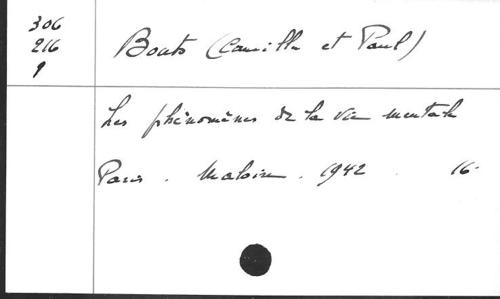 306
216
9
Bouts (Camille et Paul)
Les phénomènes de la vie mentale
Paris . Maloine . 1942 . 16-